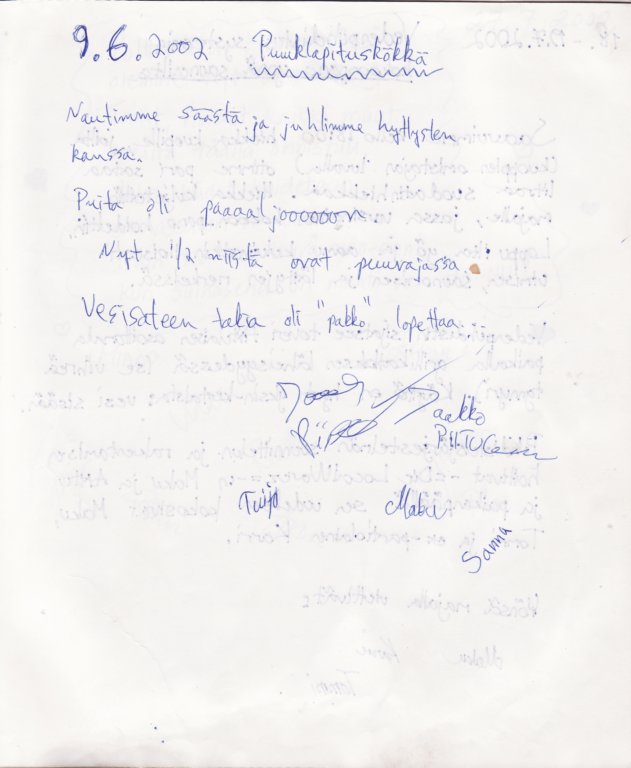 9.6.2002 Puuklapituskökkä
Nautimme säästä ja juhlimme hyttysten
kanssa.
Puita oli paaaaljoooooon
Nyt 1/2 niistä ovat puuvajassa.
Vesisateen takia oli "pakko" lopettaa.
Jaakko
PIITULAINEN
Tuijo Maku
Sanna